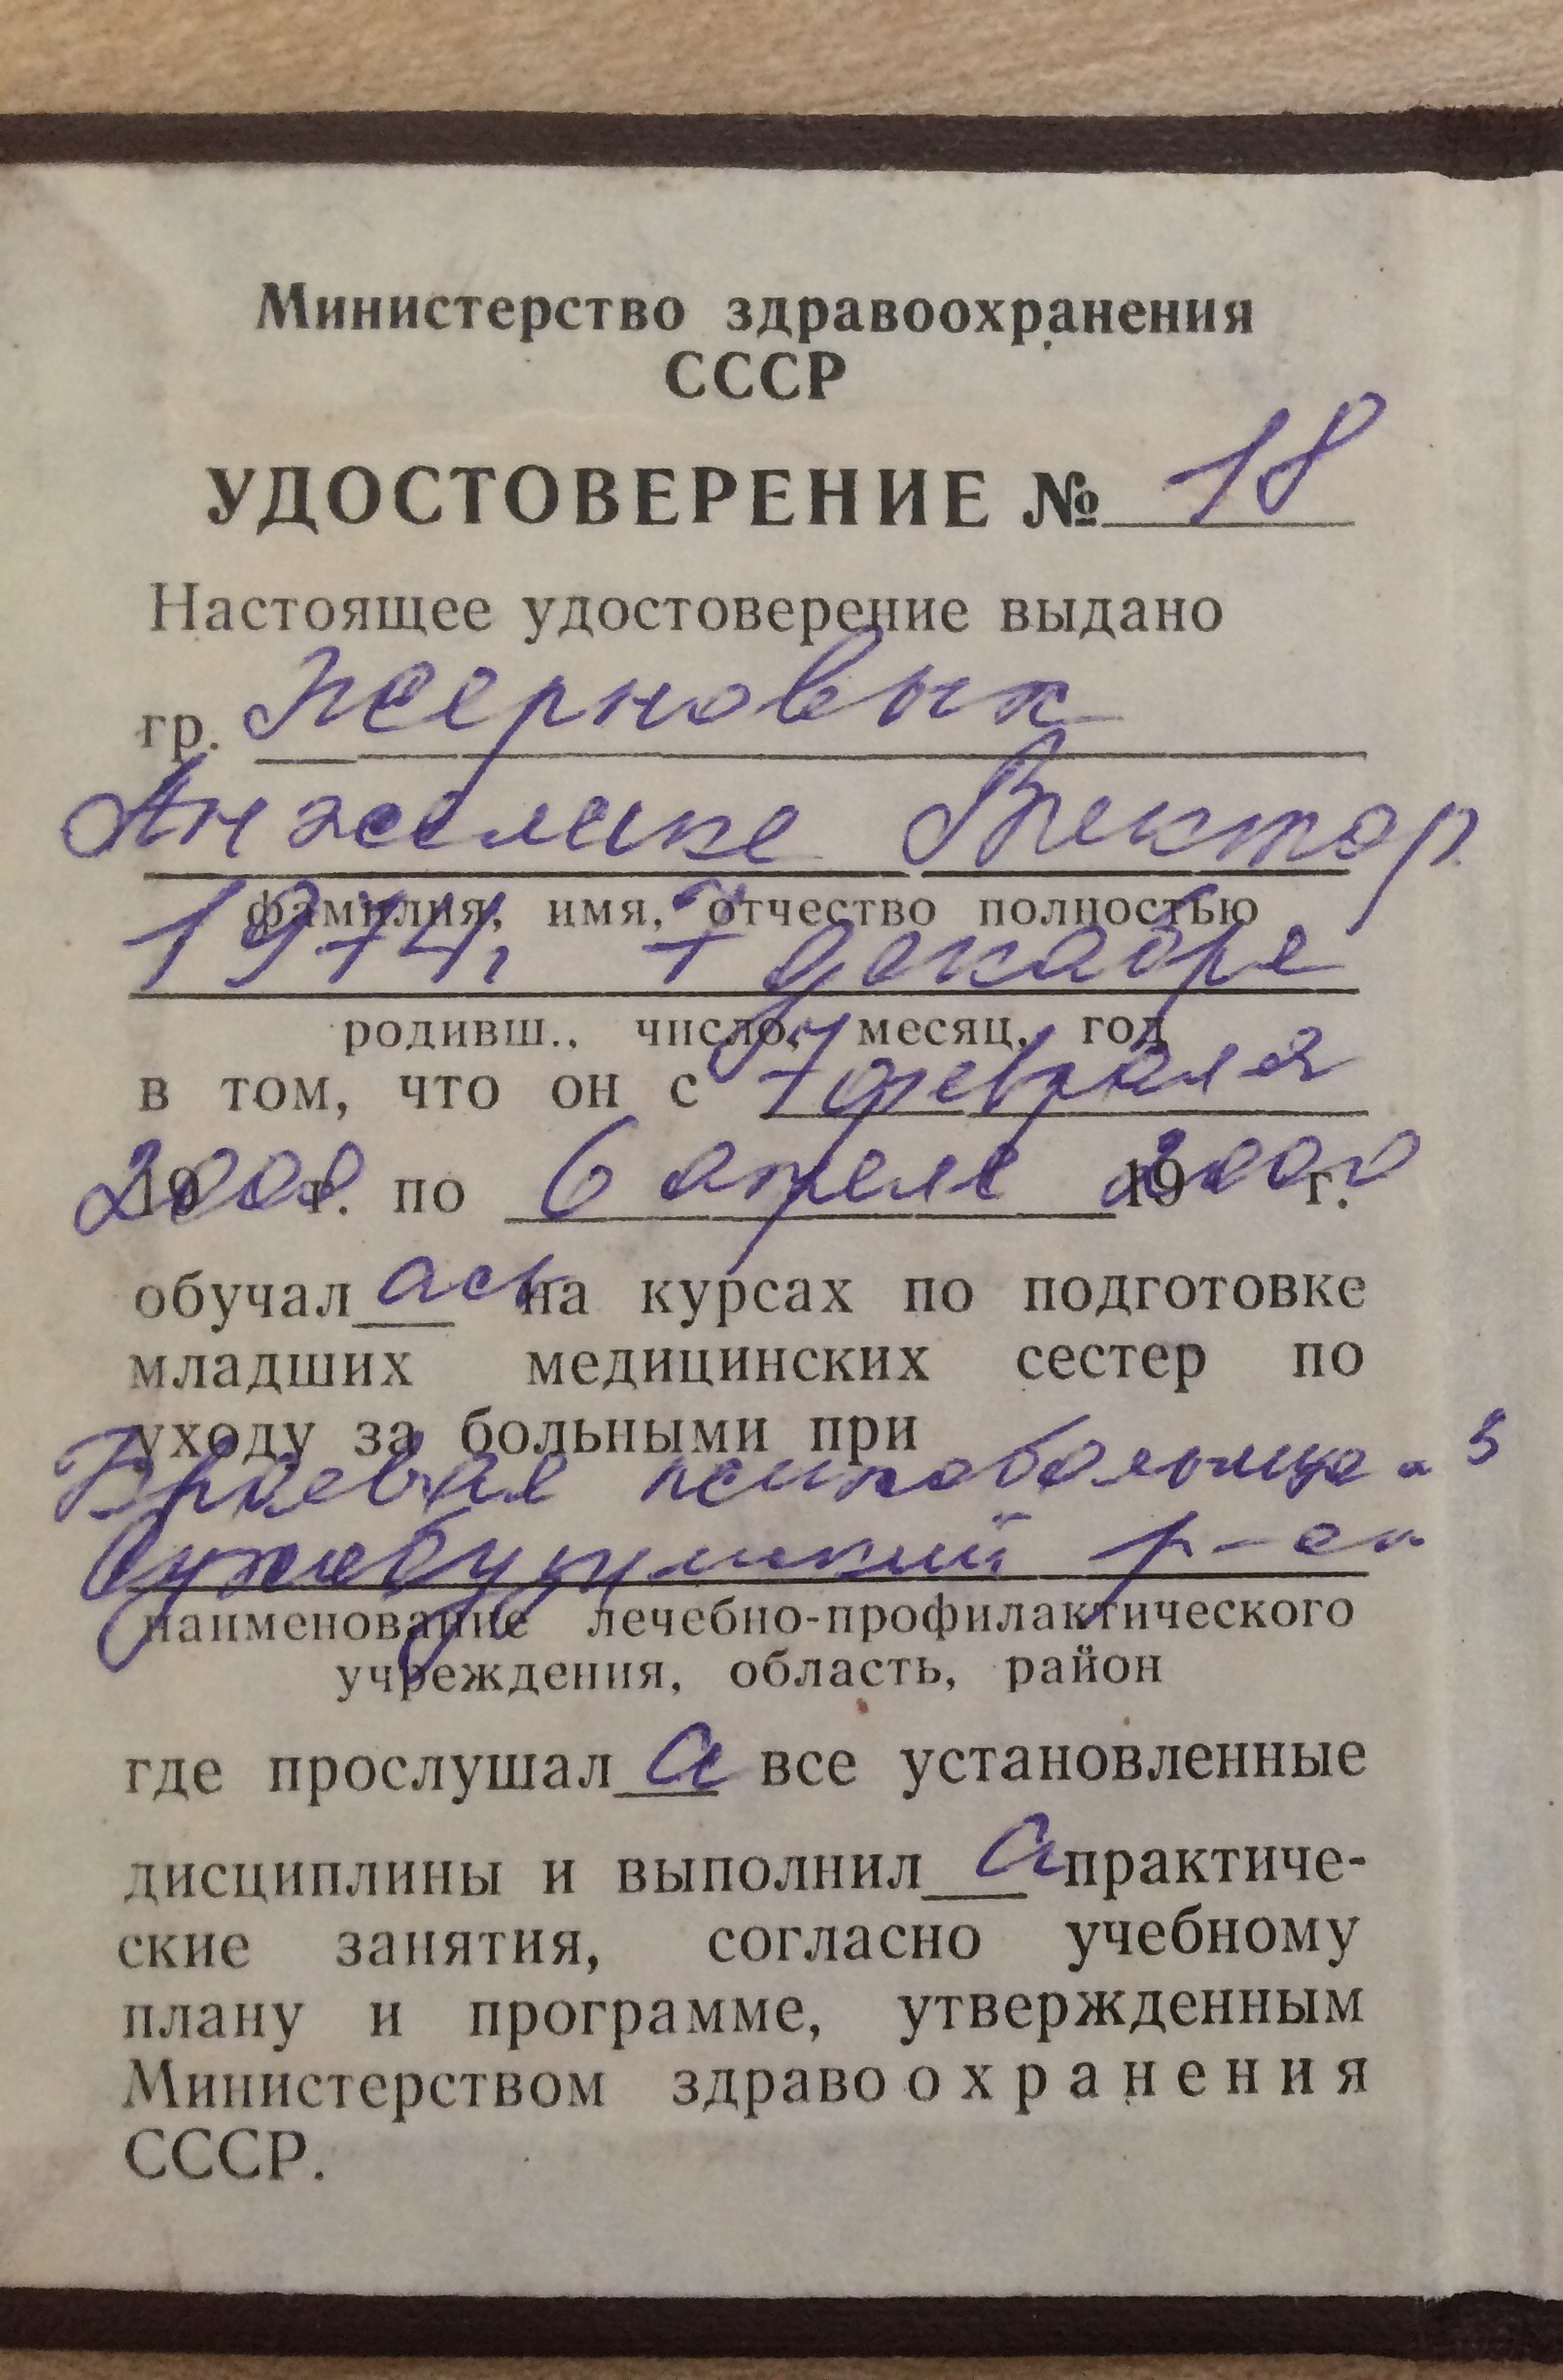 Министерство здравоохранения
СССР
УДОСТОВЕРЕНИЕ № 18
Настоящее удостоверение выдано
гр. Жерновых
Анжелике Виктор.
фамилия, имя, отчество полностью
1974, 7 декабре
родивш., число, месяц, год
в том, что он с 7 февраля
2000 г. по 6 апреля 2000 г.
обучалась на курсах по подготовке
младших медицинских сестер по
уходу за больными при
Краевая психобольница
р-он
наименование лечебно-профилактического
учреждения, область, район
где прослушала все установленные
дисциплины и выполнила практиче-
ские занятия, согласно учебному
плану и программе, утвержденным
Министерством здравоохранения
СССР.